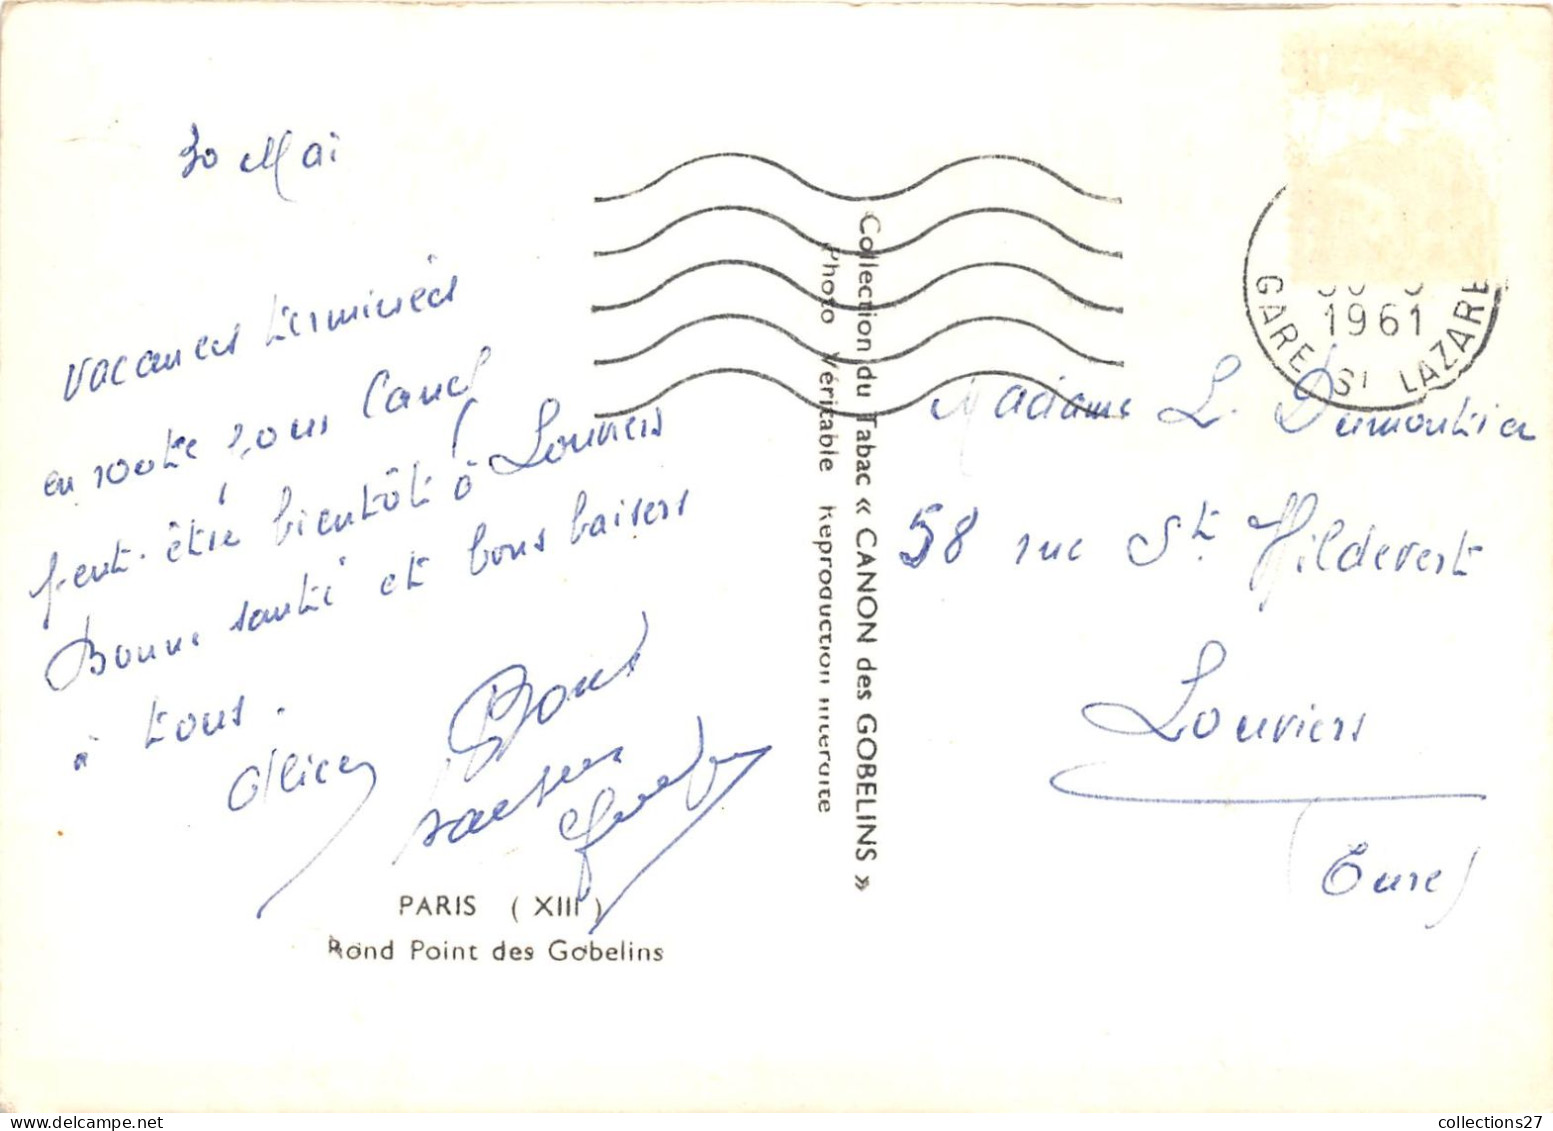 30 Mai
Vacances terminées
en route pour Caud
peut-être bientôt à Louviers
Bonne santé et bons baisers
à tous.
Alice
Bons
baisers
PARIS ( XIII )
Rond Point des Gobelins
Collection du Tabac « CANON des GOBELINS »
Photo Véritable Reproduction interdite
1961
GARE ST LAZARE
Madame L. Dumontier
58 rue St Hildevert
Louviers
(Eure)
collections27